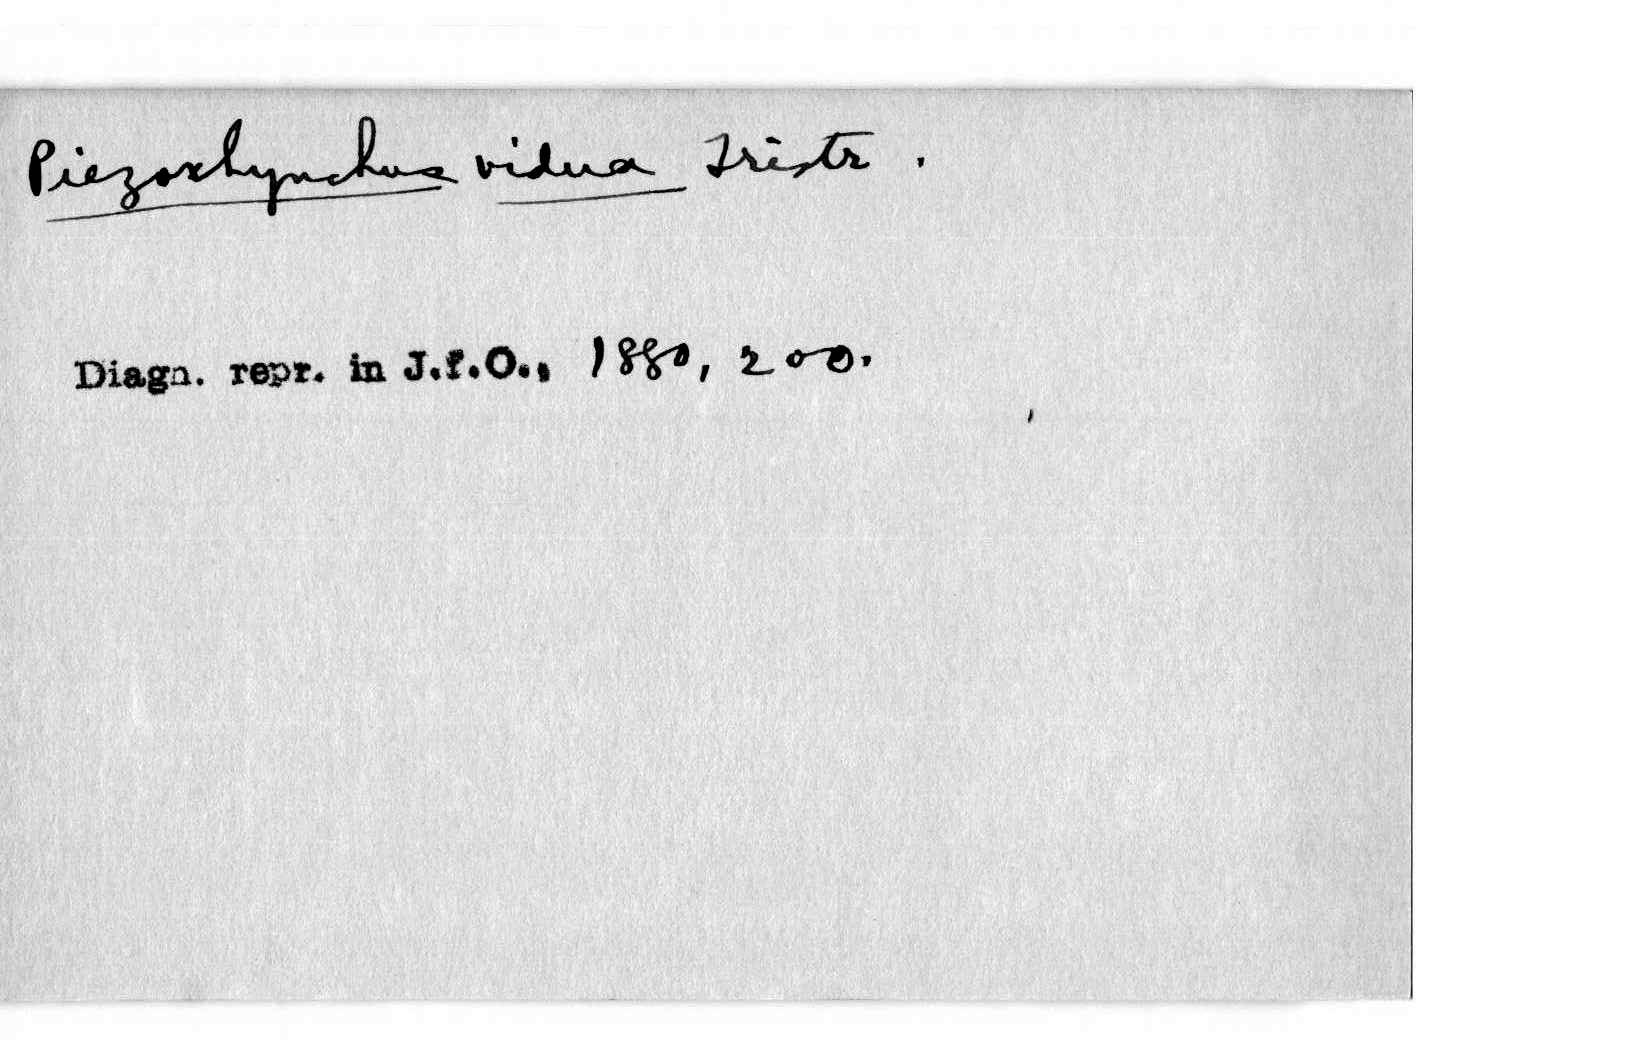 Piezorhynchus vidua Tristr.
Diagn. repr. in J.f.O., 1880, 200.